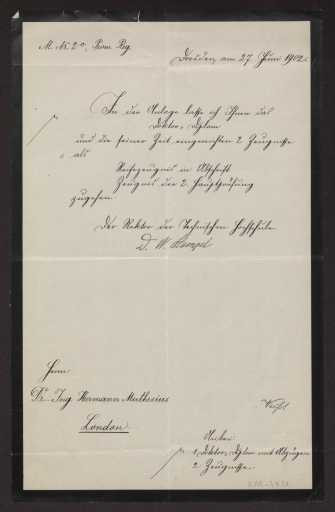 M. N. 20, Prom. Rg.
Dresden, am 27 Juni 1902.
In der Anlage lasse ich Ihnen das
Doktor-Diplom
und die seiner Zeit eingereichten 2 Zeugnisse
als
Reifezeugnis in Abschrift
Zeugnis der 2. Hauptprüfung
zugehen.
Der Rektor der Technischen Hochschule
D. W. Hempel
Herrn
Dr. Ing. Hermann Muthesius
London.
Anbei
1 Doktor-Diplom mit Abzügen
2 Zeugnisse.